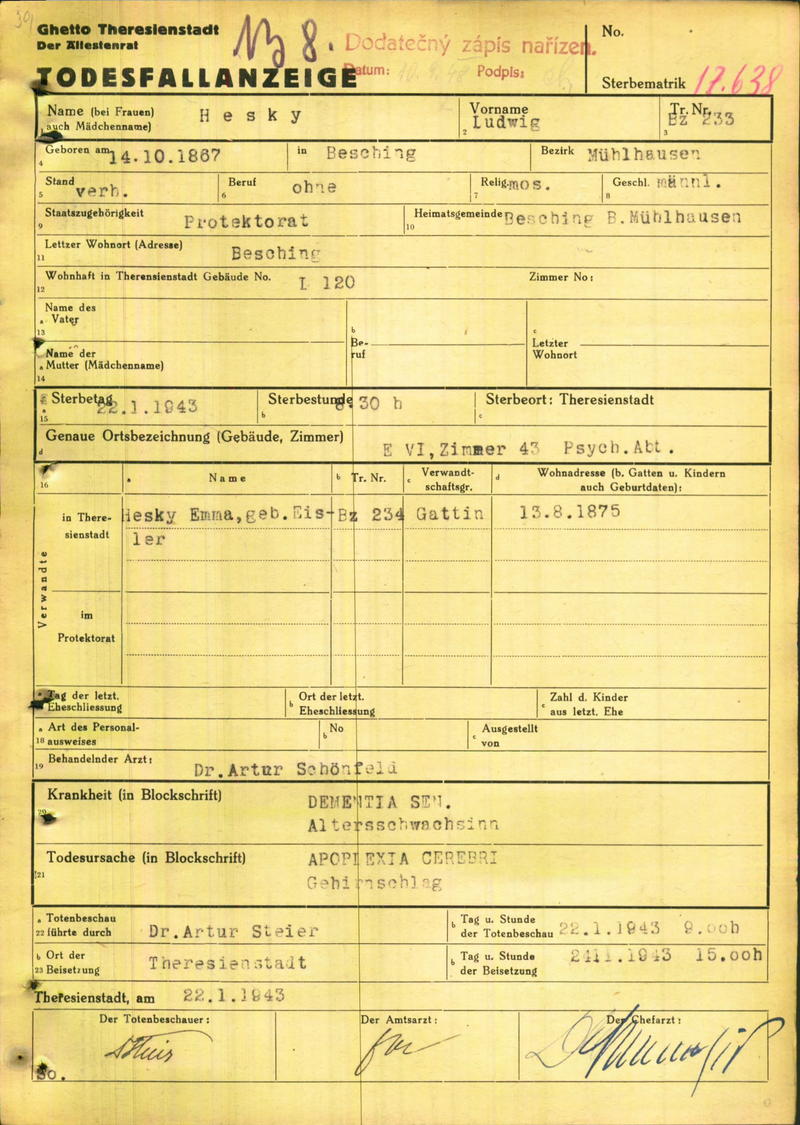 Ghetto Theresienstadt
Der Ältestenrat
TODESFALLANZEIGE
8.
Dodatečný zápis nařízen.
Datum: Podpis:
No.
Sterbematrik 17.638
Name (bei Frauen) Hesky
auch Mädchenname)
Vorname Ludwig
2
Tr. Nr. Bz 233
3
Geboren am 14.10.1867 in Besching Bezirk Mühlhausen
4
Stand verh. Beruf ohne Relig. mos. Geschl. männl.
5 6 7 8
Staatszugehörigkeit Protektorat Heimatsgemeinde Besching B.Mühlhausen
9 10
Letzer Wohnort (Adresse) Besching
11
Wohnhaft in Theresienstadt Gebäude No. L 120 Zimmer No:
12
Name des
a Vater
13
b
Be-
ruf
c
Letzter
Wohnort
Name der
a Mutter (Mädchenname)
14
Sterbetag 22.1.1943 Sterbestunde 30 h Sterbeort: Theresienstadt
15 b c
Genaue Ortsbezeichnung (Gebäude, Zimmer) E VI,Zimmer 43 Psych.Abt.
d
16 a Name b Tr. Nr. c Verwandt-
schaftsgr. d Wohnadresse (b. Gatten u. Kindern
auch Geburtdaten):
Verwandte
in There-
sienstadt
Hesky Emma,geb.Eis- Bz 234 Gattin 13.8.1875
ler
im
Protektorat
Tag der letzt.
Eheschliessung
b Ort der letzt.
Eheschliessung
c Zahl d. Kinder
aus letzt. Ehe
a Art des Personal-
18 ausweises
b No
c Ausgestellt
von
19 Behandelnder Arzt: Dr.Artur Schönfeld
Krankheit (in Blockschrift) DEMENTIA SEN.
Altersschwachsinn
Todesursache (in Blockschrift) APOPLEXIA CEREBRI
21 Gehirnschlag
a Totenbeschau
22 führte durch Dr.Artur Steier
b Tag u. Stunde
der Totenbeschau 22.1.1943 9.ooh
b Ort der
23 Beisetzung Theresienstadt
b Tag u. Stunde
der Beisetzung 1943 15.ooh
Theresienstadt, am 22.1.1943
Der Totenbeschauer: Der Amtsarzt: Der Chefarzt: